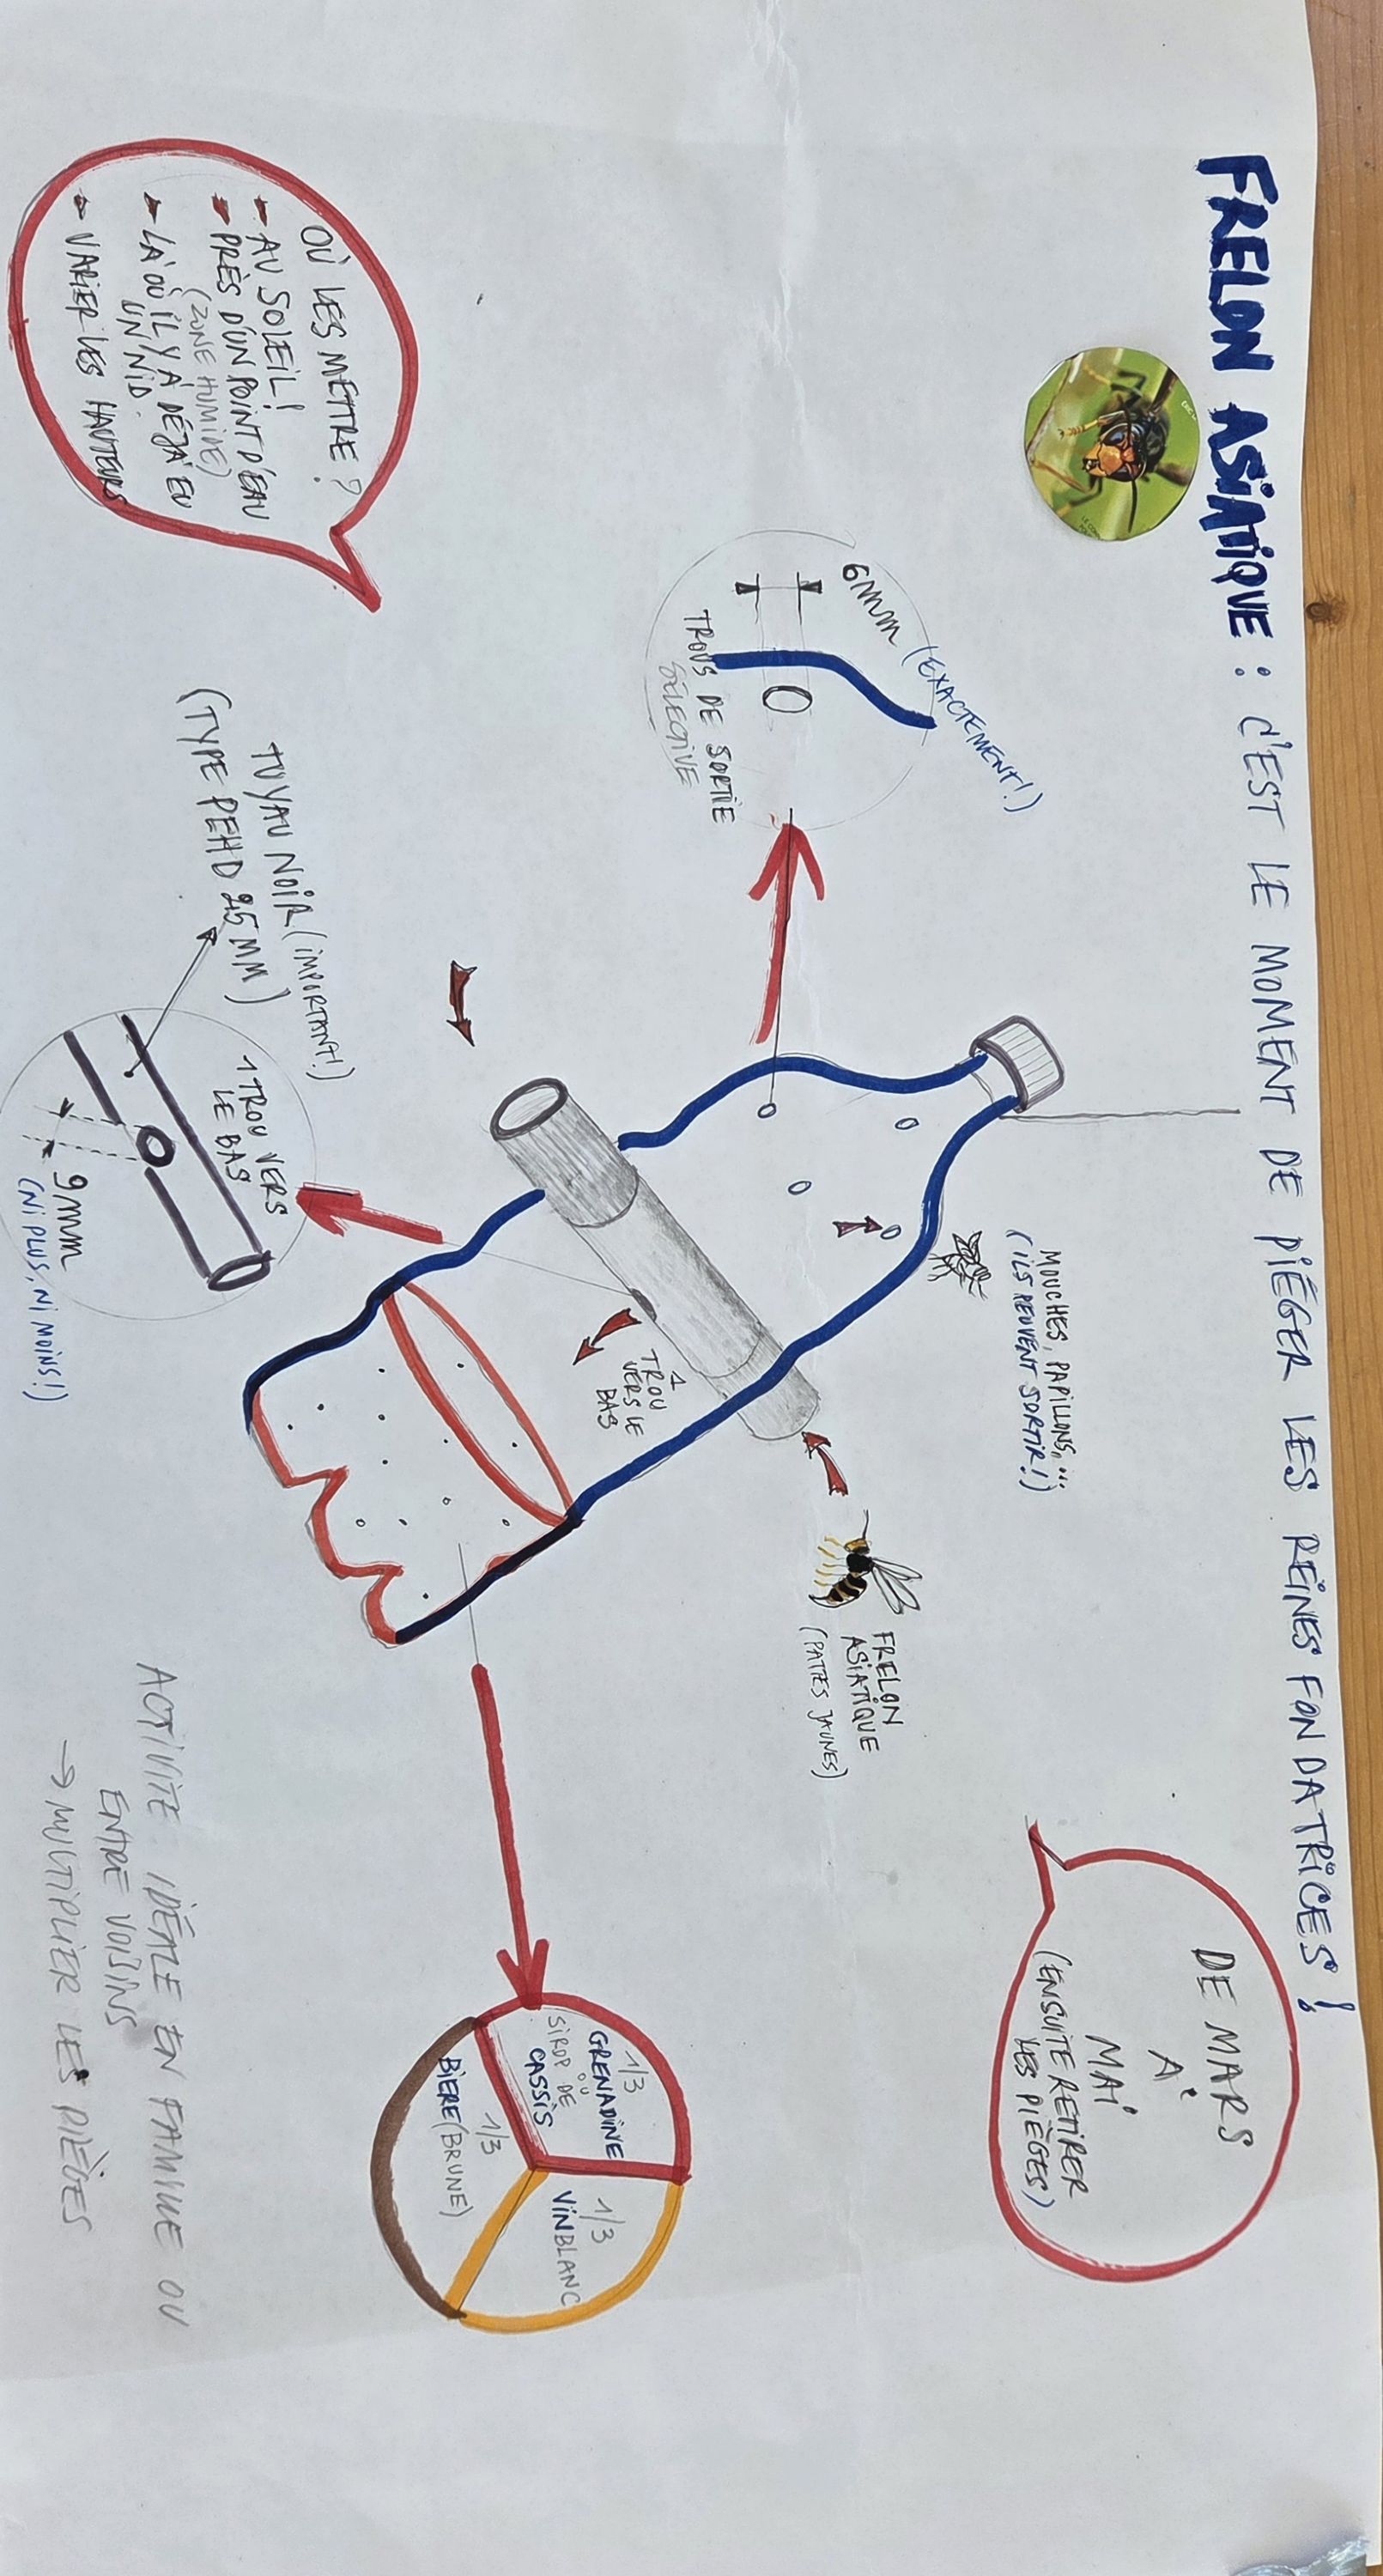 FRELON ASIATIQUE : C'EST LE MOMENT DE PIÉGER LES REINES FONDATRICES !
DE MARS
À
MAI
(ENSUITE RETIRER
LES PIÈGES)
MOUCHES, PAPILLONS, ...
(ILS PEUVENT SORTIR !)
6mm (EXACTEMENT !)
TROUS DE SORTIE
SÉLECTIVE
FRELON
ASIATIQUE
(PATTES JAUNES)
1
TROU
VERS LE
BAS
OÙ LES METTRE ?
AU SOLEIL !
PRÈS D'UN POINT D'EAU
(ZONE HUMIDE)
LÀ OÙ IL Y A DÉJÀ EU
UN NID.
VARIER LES HAUTEURS
TUYAU NOIR (IMPORTANT !)
(TYPE PEHD 25MM)
1 TROU VERS
LE BAS
9mm
(NI PLUS, NI MOINS !)
1/3
GRENADINE
OU
SIROP DE
CASSIS
1/3
VIN BLANC
1/3
BIÈRE (BRUNE)
ACTIVITÉ IDÉALE EN FAMILLE OU
ENTRE VOISINS
→ MULTIPLIER LES PIÈGES